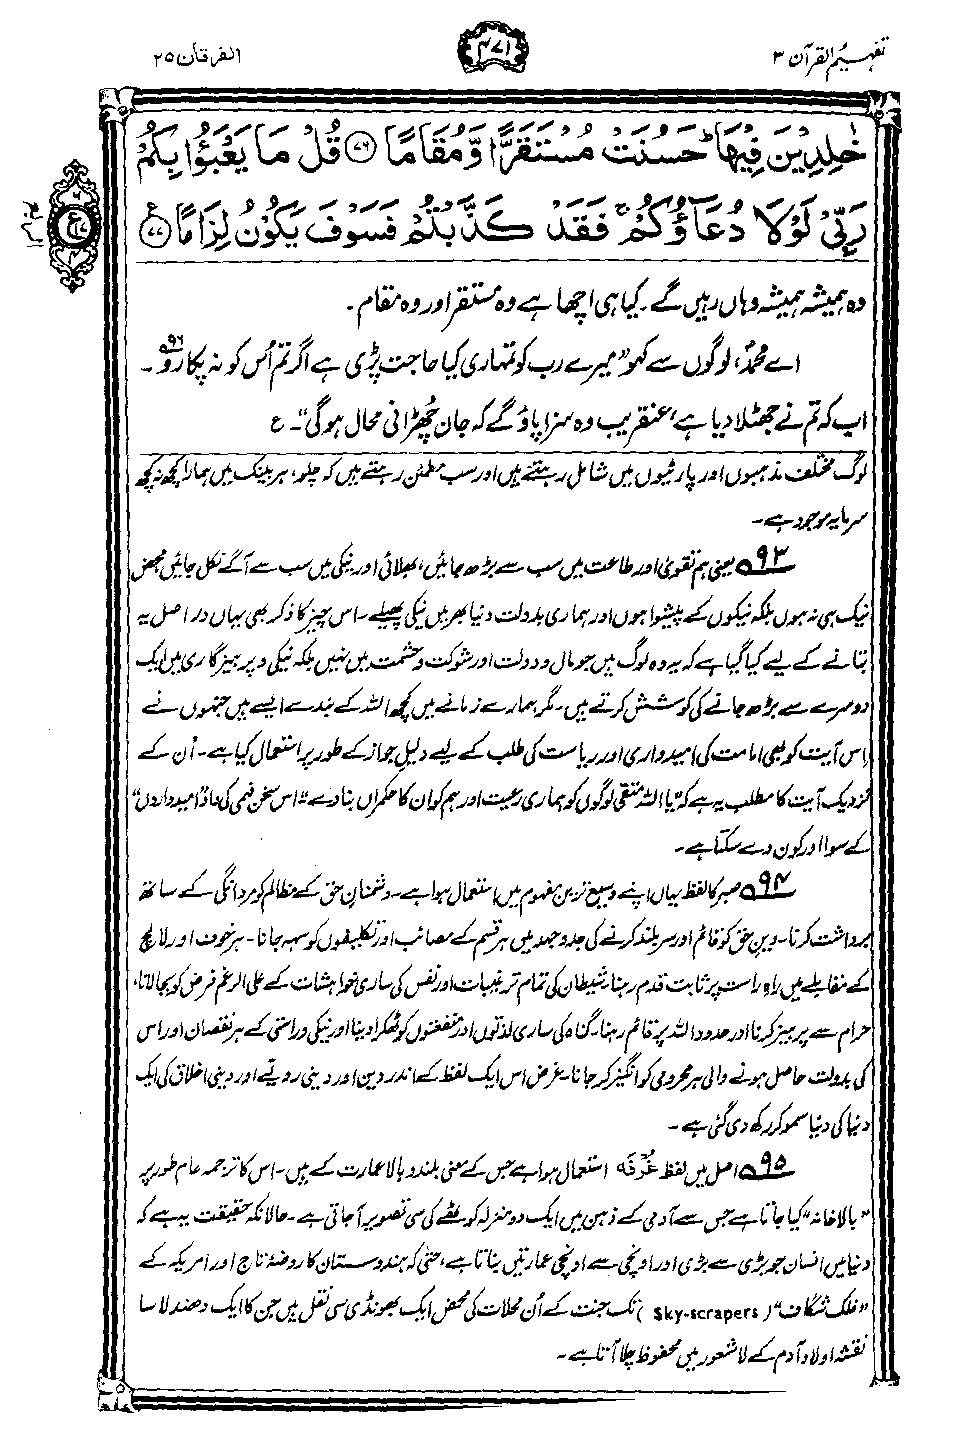 تفہیم القرآن ۳
۴۷۱
الفرقان ۲۵
خٰلِدِيْنَ فِيْهَا ؕ حَسُنَتْ مُسْتَقَرًّا وَّمُقَامًا ﴿۷۶﴾ قُلْ مَا يَعْبَؤُا بِكُمْ
رَبِّيْ لَوْلَا دُعَآؤُكُمْ ۚ فَقَدْ كَذَّبْتُمْ فَسَوْفَ يَكُوْنُ لِزَامًا ﴿۷۷﴾ ع
وہ ہمیشہ ہمیشہ وہاں رہیں گے۔ کیا ہی اچھا ہے وہ مستقر اور وہ مقام۔
اے محمدؐ، لوگوں سے کہو "میرے رب کو تمہاری کیا حاجت پڑی ہے اگر تم اُس کو نہ پکارو۹۶۔
اب کہ تم نے جھٹلا دیا ہے، عنقریب وہ سزا پاؤ گے کہ جان چھڑانی محال ہو گی"۔ ع
لوگ مختلف مذہبوں اور پارٹیوں میں شامل رہتے ہیں اور سب مطمئن رہتے ہیں کہ چلو، ہر بینک میں ہمارا کچھ نہ کچھ
سرمایہ موجود ہے۔
۹۳ یعنی ہم تقویٰ اور طاعت میں سب سے بڑھ جائیں، بھلائی اور نیکی میں سب سے آگے نکل جائیں، محض
نیک ہی نہ ہوں بلکہ نیکوں کے پیشوا ہوں اور ہماری بدولت دنیا بھر میں نیکی پھیلے۔ اس چیز کا ذکر بھی یہاں دراصل یہ
بتانے کے لیے کیا گیا ہے کہ یہ وہ لوگ ہیں جو مال و دولت اور شوکت و حشمت میں نہیں بلکہ نیکی و پرہیزگاری میں ایک
دوسرے سے بڑھ جانے کی کوشش کرتے ہیں۔ مگر ہمارے زمانے میں کچھ اللہ کے بندے ایسے ہیں جنہوں نے
اس آیت کو بھی امامت کی امیدواری اور ریاست کی طلب کے لیے دلیلِ جواز کے طور پر استعمال کیا ہے۔ اُن کے
نزدیک آیت کا مطلب یہ ہے کہ "یا اللہ متقی لوگوں کو ہماری رعیت اور ہم کو ان کا حکمراں بنا دے"۔ اس سخن فہمی کی داد "امیدواروں"
کے سوا اور کون دے سکتا ہے۔
۹۴ صبر کا لفظ یہاں اپنے وسیع ترین مفہوم میں استعمال ہوا ہے۔ دشمنانِ حق کے مظالم کو مردانگی کے ساتھ
برداشت کرنا۔ دینِ حق کو قائم اور سربلند کرنے کی جدوجہد میں ہر قسم کے مصائب اور تکلیفوں کو سہہ جانا۔ ہر خوف اور لالچ
کے مقابلے میں راہِ راست پر ثابت قدم رہنا۔ شیطان کی تمام ترغیبات اور نفس کی ساری خواہشات کے علی الرغم فرض کو بجا لانا،
حرام سے پرہیز کرنا اور حدود اللہ پر قائم رہنا۔ گناہ کی ساری لذتوں اور منفعتوں کو ٹھکرا دینا اور نیکی و راستی کے ہر نقصان اور اس
کی بدولت حاصل ہونے والی ہر محرومی کو انگیز کر جانا۔ غرض اس ایک لفظ کے اندر دین اور دینی رویّے اور دینی اخلاق کی ایک
دنیا کی دنیا سمو کر رکھ دی گئی ہے۔
۹۵ اصل میں لفظ غُرْفَہ استعمال ہوا ہے جس کے معنی بلند و بالا عمارت کے ہیں۔ اس کا ترجمہ عام طور پر
"بالاخانہ" کیا جاتا ہے جس سے آدمی کے ذہن میں ایک دو منزلہ کوٹھے کی سی تصویر آ جاتی ہے۔ حالانکہ حقیقت یہ ہے کہ
دنیا میں انسان جو بڑی سے بڑی اور اونچی سے اونچی عمارتیں بناتا ہے، حتیٰ کہ ہندوستان کا روضۂ تاج اور امریکہ کے
"فلک شگاف" (Sky-scrapers) تک جنت کے اُن محلات کی محض ایک بھونڈی سی نقل ہیں جن کا ایک دھندلا سا
نقشہ اولادِ آدم کے لاشعور میں محفوظ چلا آتا ہے۔